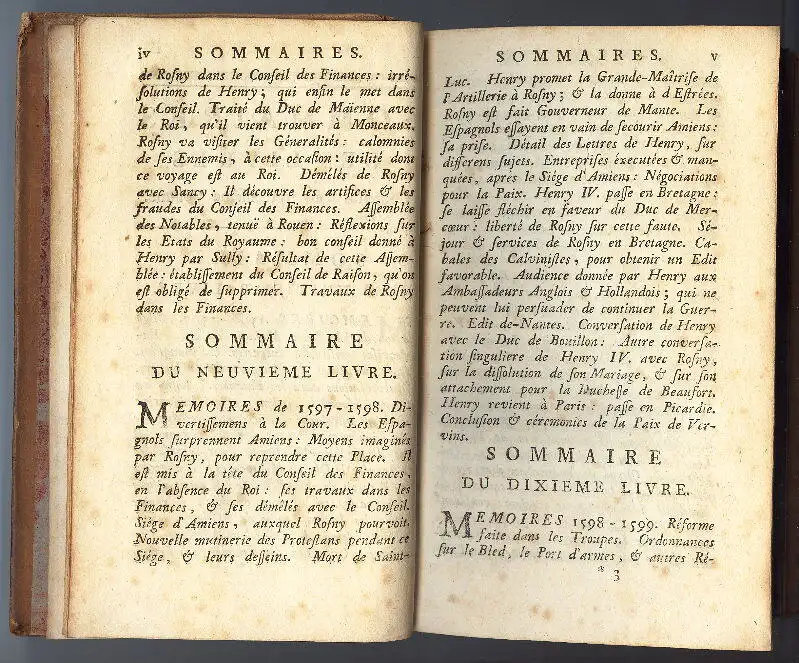 iv SOMMAIRES.
de Rosny dans le Conseil des Finances : irré-
solutions de Henry ; qui enfin le met dans
le Conseil. Traité du Duc de Maïenne avec
le Roi, qu'il vient trouver à Monceaux.
Rosny va visiter les Géneralités : calomnies
de ses Ennemis, à cette occasion : utilité dont
ce voyage est au Roi. Démêlés de Rosny
avec Sancy : Il découvre les artifices & les
fraudes du Conseil des Finances. Assemblée
des Notables, tenuë à Rouen : Réflexions sur
les Etats du Royaume : bon conseil donné à
Henry par Sully : Résultat de cette Assem-
blée : établissement du Conseil de Raison, qu'on
est obligé de supprimer. Travaux de Rosny
dans les Finances.
SOMMAIRE
DU NEUVIEME LIVRE.
MEMOIRES de 1597-1598. Di-
vertissemens à la Cour. Les Espa-
gnols surprennent Amiens : Moyens imaginés
par Rosny, pour reprendre cette Place. Il
est mis à la tête du Conseil des Finances,
en l'absence du Roi : ses travaux dans les
Finances, & ses démêlés avec le Conseil.
Siége d'Amiens, auquel Rosny pourvoit.
Nouvelle mutinerie des Protestans pendant ce
Siége, & leurs desseins. Mort de Saint-
SOMMAIRES. v
Luc. Henry promet la Grande-Maîtrise de
l'Artillerie à Rosny ; & la donne à d'Estrées.
Rosny est fait Gouverneur de Mante. Les
Espagnols essayent en vain de secourir Amiens :
sa prise. Détail des Lettres de Henry, sur
differens sujets. Entreprises éxecutées & man-
quées, après le Siége d'Amiens : Négociations
pour la Paix. Henry IV. passe en Bretagne :
se laisse fléchir en faveur du Duc de Mer-
cœur : liberté de Rosny sur cette faute. Sé-
jour & services de Rosny en Bretagne. Ca-
bales des Calvinistes, pour obtenir un Edit
favorable. Audience donnée par Henry aux
Ambassadeurs Anglois & Hollandois ; qui ne
peuvent lui persuader de continuer la Guer-
re. Edit de-Nantes. Conversation de Henry
avec le Duc de Bouillon : Autre conversa-
tion singuliere de Henry IV. avec Rosny,
sur la dissolution de son Mariage, & sur son
attachement pour la Duchesse de Beaufort.
Henry revient à Paris : passe en Picardie.
Conclusion & cérémonies de la Paix de Ver-
vins.
SOMMAIRE
DU DIXIEME LIVRE.
MEMOIRES 1598-1599. Réforme
faite dans les Troupes. Ordonnances
sur le Bled, le Port d'armes, & autres Ré-
* 3